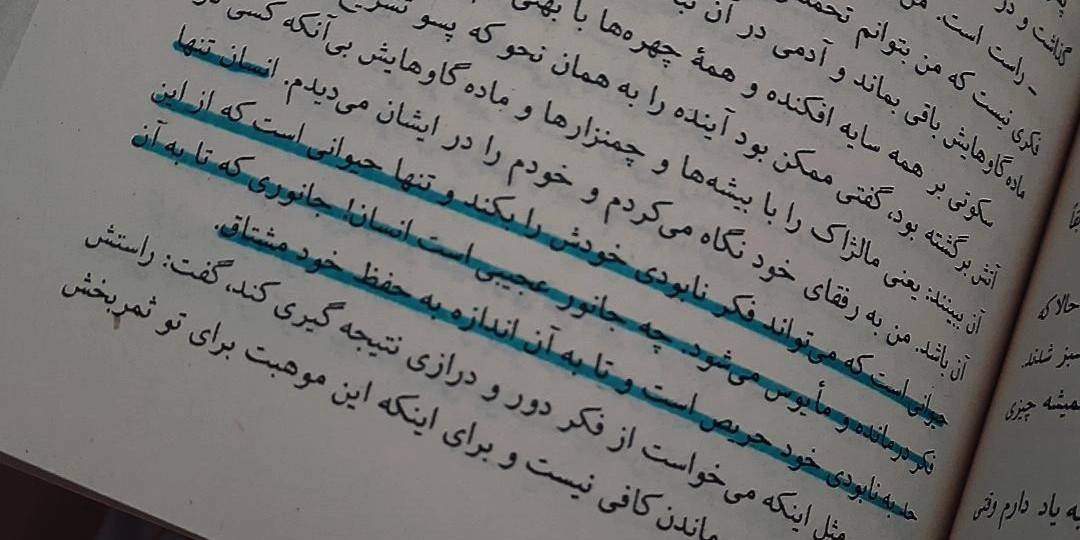 گذاشت و در
ـ راست است. من
فکری نیست که من بتوانم
ماده گاوهایش باقی بماند و آدمی در آن
سکوتی بر همه سایه افکنده و همهٔ چهره‌ها با بهتی
آتش برگشته بود، گفتی ممکن بود آینده را به همان نحو که پسو تشریح
آن ببینند: یعنی مالژاک را با بیشه‌ها و چمنزارها و ماده گاوهایش بی‌آنکه کسی در
آن باشد. من به رفقای خود نگاه می‌کردم و خودم را در ایشان می‌دیدم. انسان تنها
حیوانی است که می‌تواند فکر نابودی خودش را بکند و تنها حیوانی است که از این
فکر درمانده و مأیوس می‌شود. چه جانور عجیبی است انسان! جانوری که تا به آن
حد به نابودی خود حریص است و تا به آن اندازه به حفظ خود مشتاق.
مثل اینکه می‌خواست از فکر دور و درازی نتیجه گیری کند، گفت: راستش
ماندن کافی نیست و برای اینکه این موهبت برای تو ثمربخش
حالا که
سبز شدند.
همیشه چیزی
به یاد دارم وقتی